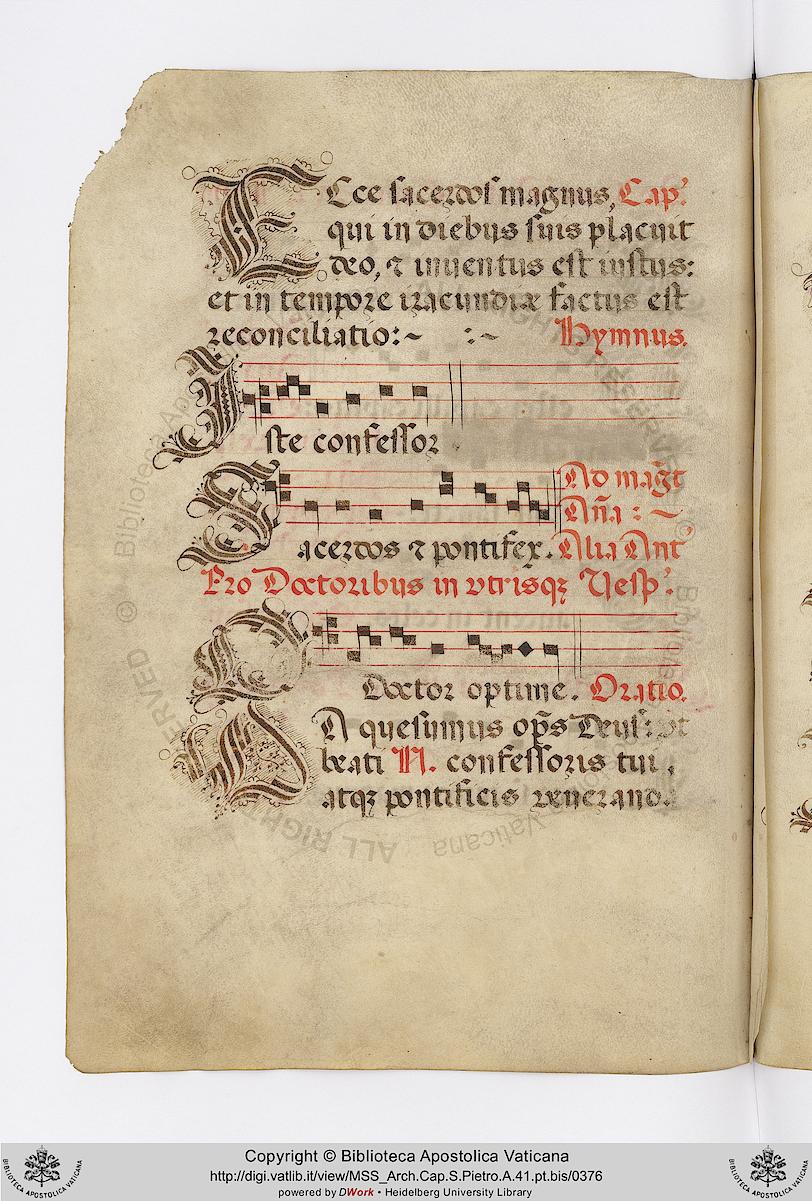 Ecce sacerdos magnus, Cap.
qui in diebus suis placuit
deo, ⁊ inuentus est iustus:
et in tempore iracundiæ factus est
reconciliatio:~ :~ Hymnus.
Iste confessor
Ad mag̃t
Añа :~
Sacerdos ⁊ pontifex. Alia Ant
Pro Doctoribus in vtrisqꝫ Vesp.
O Doctor optime. Oratio.
DA quesumus op̃s Deus: vt
beati N. confessoris tui,
atqꝫ pontificis venerand.
Copyright © Biblioteca Apostolica Vaticana
http://digi.vatlib.it/view/MSS_Arch.Cap.S.Pietro.A.41.pt.bis/0376
powered by DWork • Heidelberg University Library
BIBLIOTECA APOSTOLICA VATICANA
BIBLIOTECA APOSTOLICA VATICANA
© Biblioteca Apostolica Vaticana ALL RIGHTS RESERVED